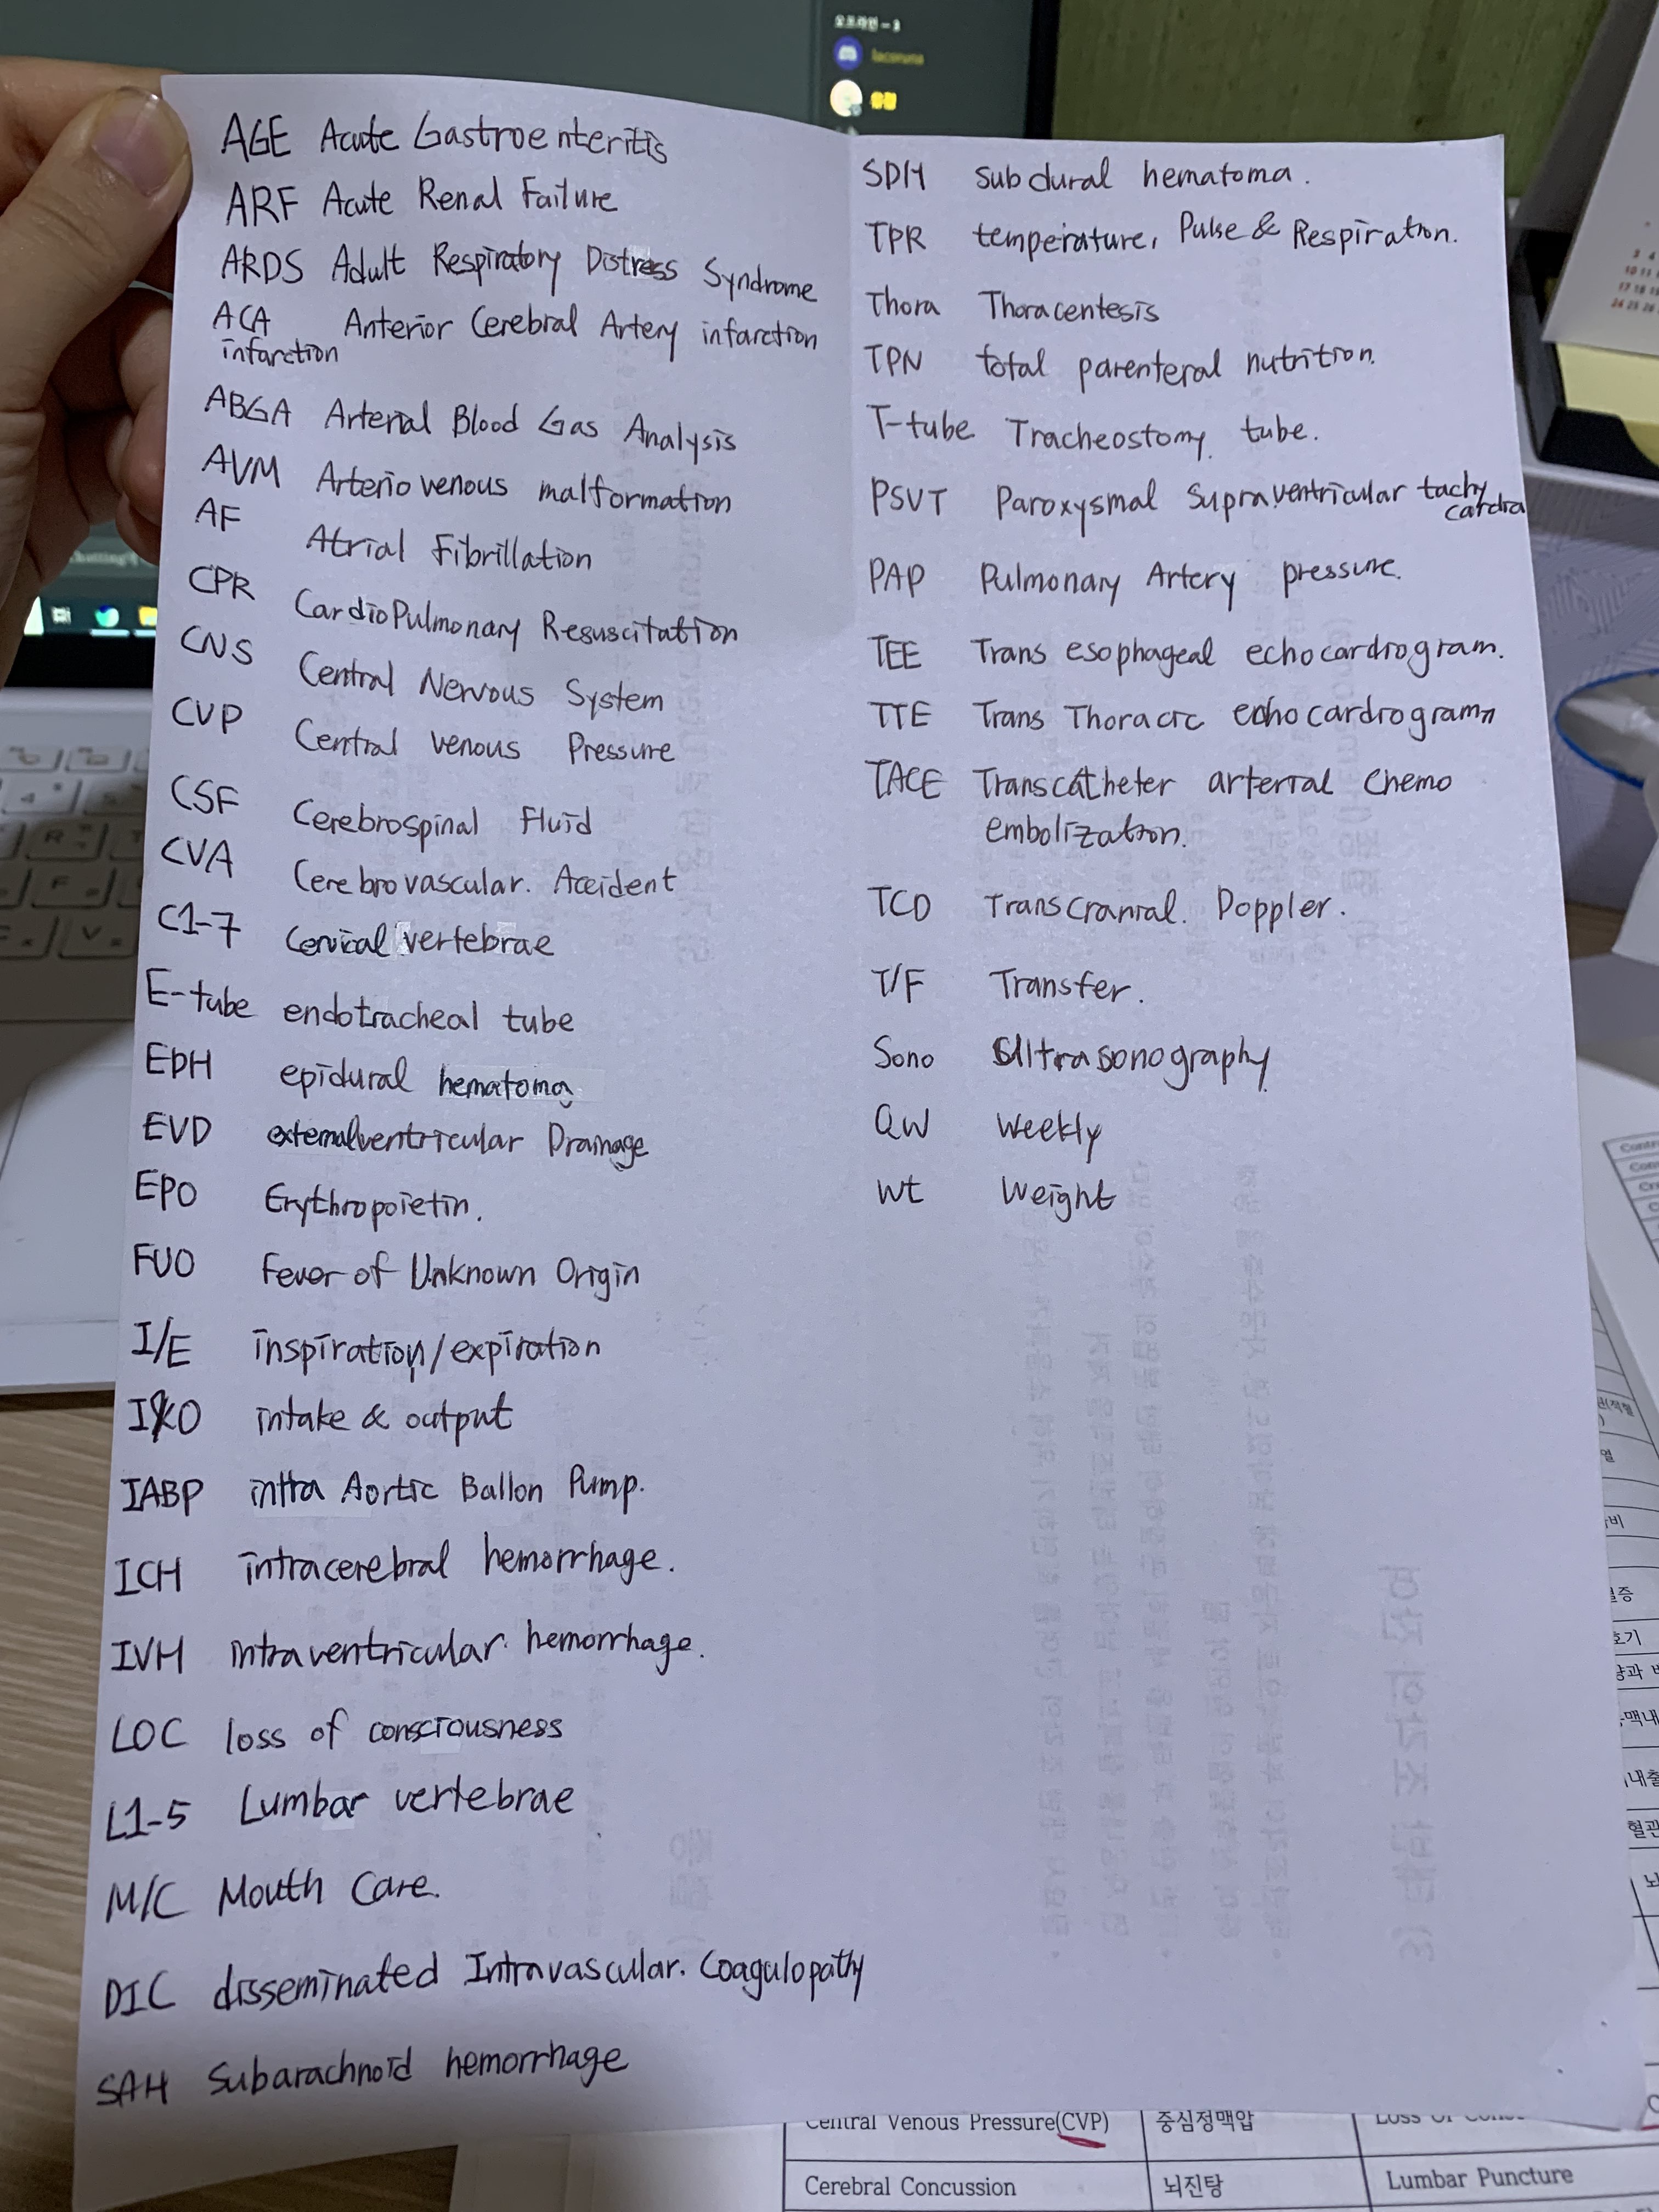 AGE Acute Gastroenteritis
ARF Acute Renal Failure
ARDS Adult Respiratory Distress Syndrome
ACA infarction Anterior Cerebral Artery infarction
ABGA Arterial Blood Gas Analysis
AVM Arteriovenous malformation
AF Atrial Fibrillation
CPR CardioPulmonary Resuscitation
CNS Central Nervous System
CVP Central venous Pressure
CSF Cerebrospinal Fluid
CVA Cerebrovascular. Accident
C1-7 Cervical vertebrae
E-tube endotracheal tube
EDH epidural hematoma
EVD external ventricular Drainage
EPO Erythropoietin.
FUO Fever of Unknown Origin
I/E inspiration/expiration
I&O intake & output
IABP intra Aortic Ballon Pump.
ICH intracerebral hemorrhage.
IVH intraventricular hemorrhage.
LOC loss of consciousness
L1-5 Lumbar vertebrae
M/C Mouth Care.
DIC disseminated Intravascular. Coagulopathy
SAH Subarachnoid hemorrhage
SDH subdural hematoma.
TPR temperature, Pulse & Respiration.
Thora Thoracentesis
TPN total parenteral nutrition.
T-tube Tracheostomy tube.
PSVT Paroxysmal Supraventricular tachy
cardia
PAP Pulmonary Artery pressure.
TEE Trans esophageal echocardiogram.
TTE Trans Thoracic echocardiogram
TACE Transcatheter arterial chemo
embolization.
TCD Transcranial. Doppler.
T/F Transfer.
Sono Ultrasonography
QW Weekly
Wt Weight
Central Venous Pressure(CVP) 중심정맥압
Cerebral Concussion 뇌진탕 Lumbar Puncture